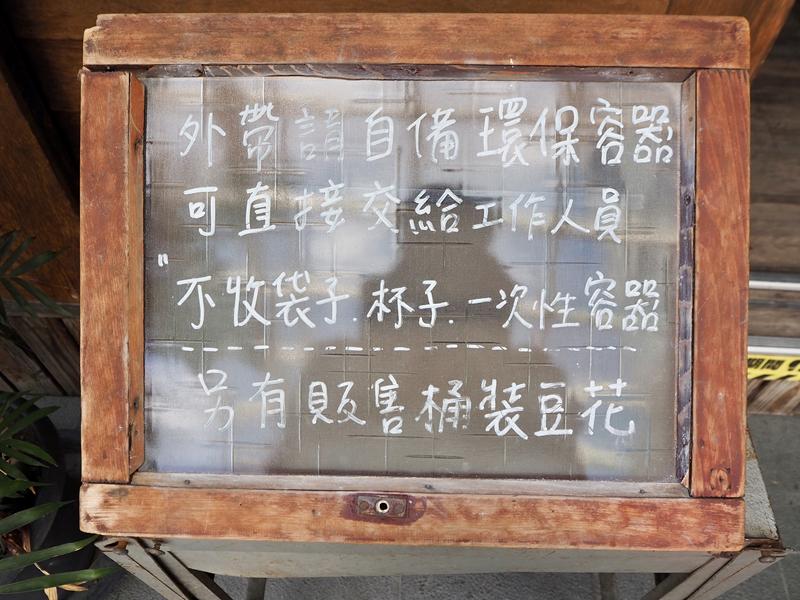 外帶請自備環保容器
可直接交給工作人員
"不收袋子.杯子.一次性容器
另有販售桶裝豆花